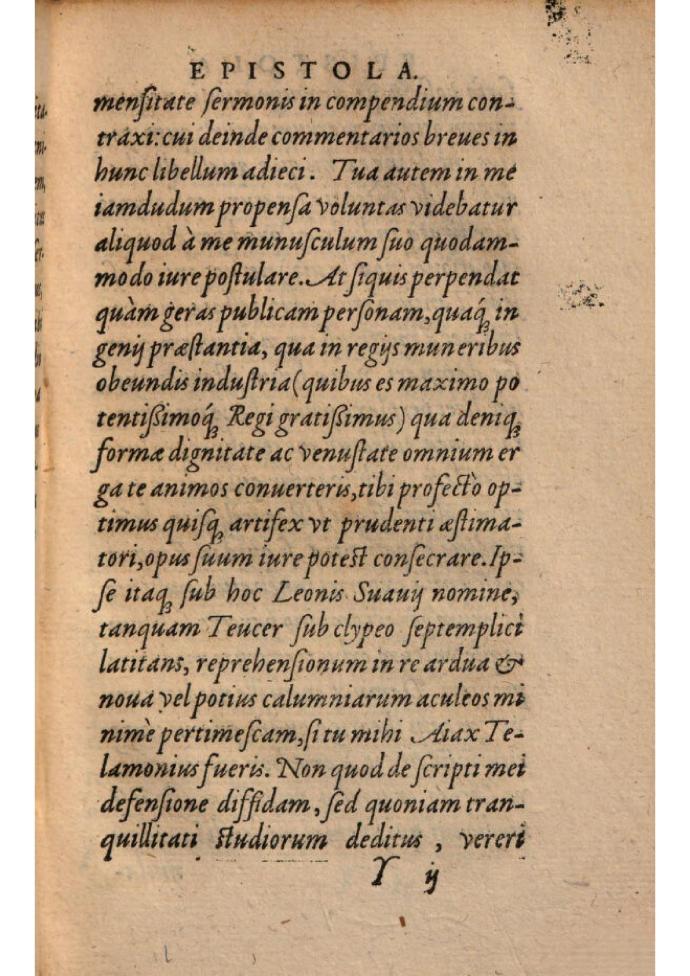 EPISTOLA.
menſitate ſermonis in compendium con-
traxi: cui deinde commentarios breues in
hunc libellum adieci. Tua autem in me
iamdudum propenſa voluntas videbatur
aliquod à me munuſculum ſuo quodam-
modo iure poſtulare. At ſiquis perpendat
quàm geras publicam perſonam, quaq́ꝫ in
genij præſtantia, qua in regijs muneribus
obeundis induſtria (quibus es maximo po
tentißimoq́ꝫ Regi gratißimus) qua deniqꝫ
formæ dignitate ac venuſtate omnium er
ga te animos conuerteris, tibi profectò op-
timus quiſqꝫ artifex vt prudenti æſtima-
tori, opus ſuum iure poteſt conſecrare. Ip-
ſe itaqꝫ ſub hoc Leonis Suauij nomine,
tanquam Teucer ſub clypeo ſeptemplici
latitans, reprehenſionum in re ardua &
noua vel potius calumniarum aculeos mi
nimè pertimeſcam, ſi tu mihi Aiax Te-
lamonius fueris. Non quod de ſcripti mei
defenſione diffidam, ſed quoniam tran-
quillitati ſtudiorum deditus, vereri
Y ij